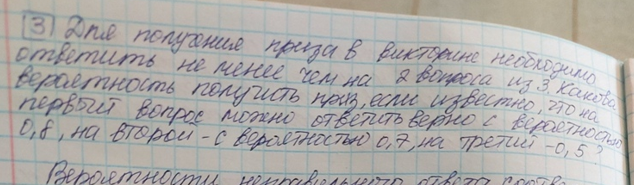 3) Для получения приза в викторине необходимо
ответить не менее чем на 2 вопроса из 3. Какова
вероятность получить приз, если известно, что на
первый вопрос можно ответить верно с вероятностью
0,8, на второй - с вероятностью 0,7, на третий - 0,5?
Вероятности неправильного ответа соотв